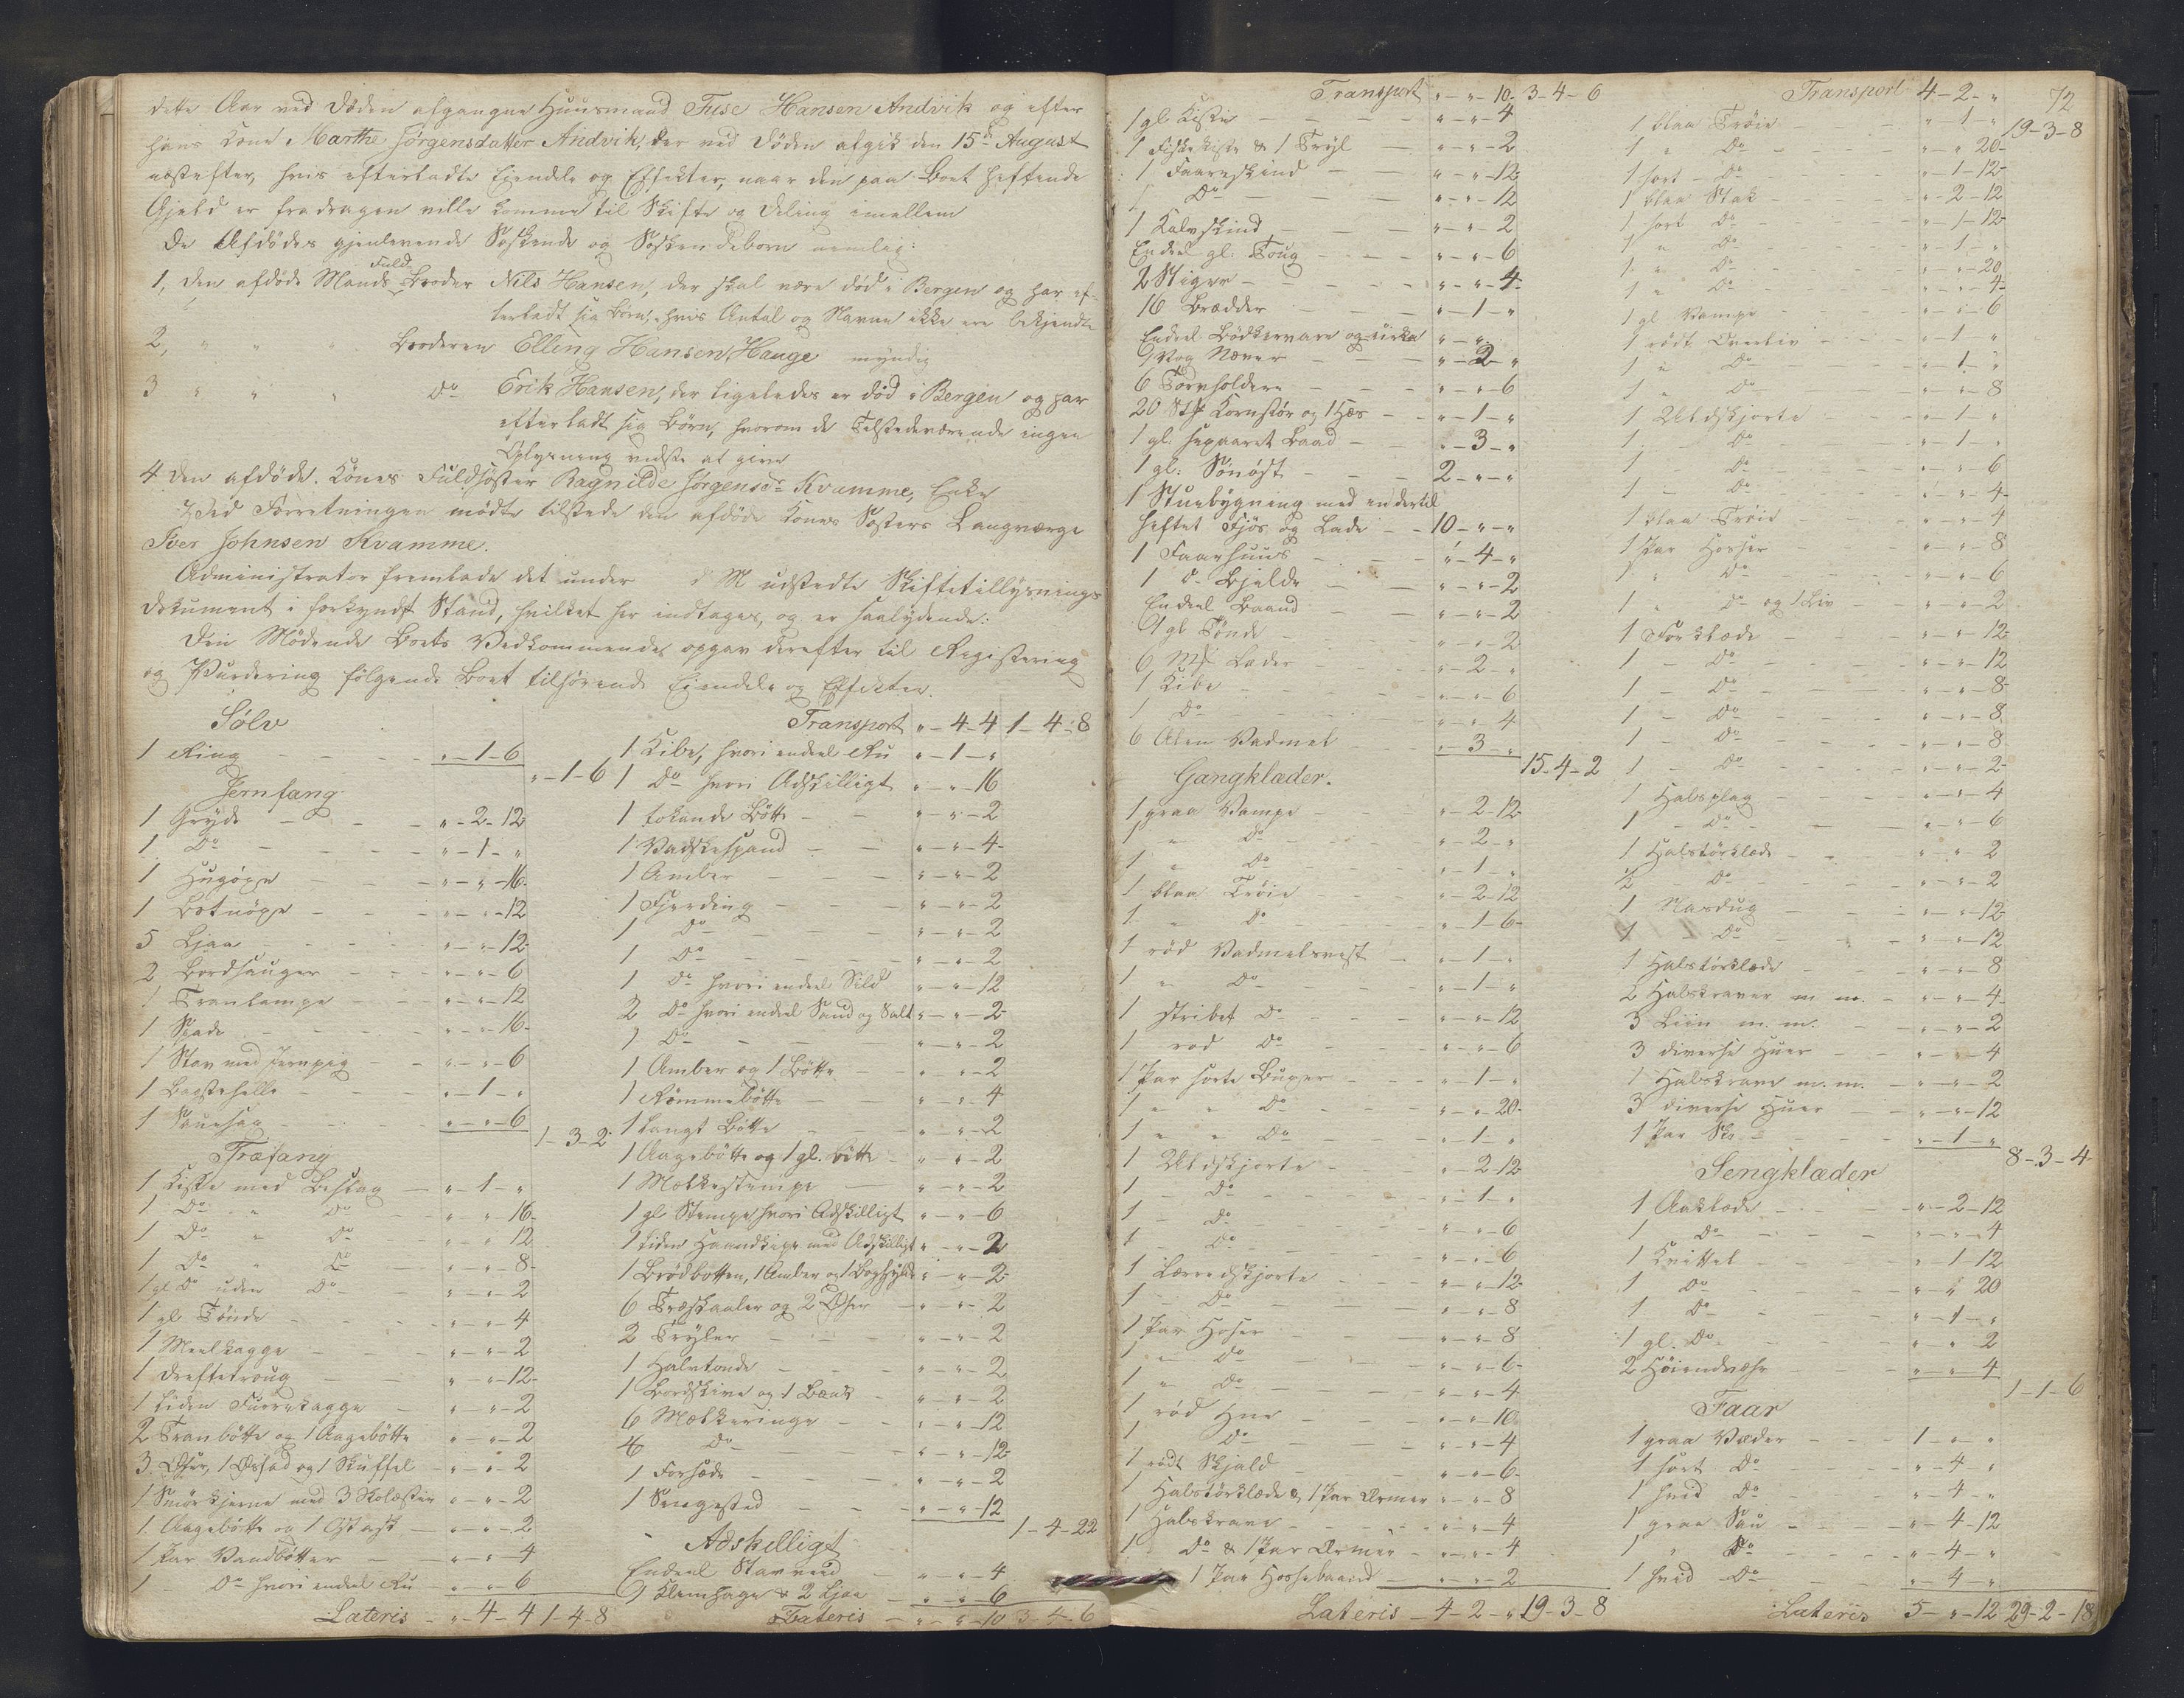 dette Aar ved Døden afgangne Huusmand Fuse Hansen Andvik og efter
hans Kone Marthe Jørgensdatter Andvik, der ved Døden afgik den 15de August
næstefter, hvis efterladte Eiendele og Effekter, naar den paa Boet heftende
Gjeld er fradragen ville komme til Skifte og Deling imellem
De Afdødes gjenlevende Søskende og Søskendebørn nemlig:
1, den afdøde Mands Fuld Broder Nils Hansen, der skal være død i Bergen og har ef-
terladt sig Børn, hvis Antal og Navne ikke ere bekjendte
2, " " " Broderen Elling Hansen Hauge myndig
3 " " " Do Erik Hansen, der ligeledes er død i Bergen og har
efterladt sig Børn, hvorom de Tilstedeværende ingen
Oplysning vidste at give
4 den afdøde Kones Fuldsøster Ragnilde Jørgensdr Kvamme, Enke
Ved Forretningen mødte tilstede den afdøde Kones Søsters Laugværge
Iver Johnsen Kvamme.
Administrator fremlagde det under d M udstedte Skiftetillysnings
Dokument i forkyndt Stand, hvilket her indtages, og er saalydende:
Den Mødende Boets Vedkommende opgav derefter til Registering
og Vurdering følgende Boet tilhørende Eiendele og Effekter.
Sølv
1 Ring " - 1 - 6
" - 1 - 6
Jernfang
1 Gryde " - 2 - 12
1 Do " - 1 - "
1 Hugøxe " - " - 16
1 Botnøxe " - " - 12
5 Ljaa " - " - 12
2 Bordsauger " - " - 6
1 Tranlampe " - " - 12
1 Spade " - " - 16
1 Stav med Jernpig " - " - 6
1 Bagstehelle " - 1 - "
1 Sauesax " - " - 6
1 - 3 - 2
Træfang
1 Kiste med Beslag " - 1 - "
1 Do " Do " " 16
1 Do " Do " " 12
1 Do " Do " - " - 8
1 gl Do uden Do " - " - 2
1 gl Tønde " - " - 4
1 Meelkagge " - " - 2
1 Drøftetroug " - " - 12
1 liden Furrekagge " - " - 2
2 Tranbøtte og 1 Aagebøtte " - " - 2
3 Øser, 1 Øsfad og 1 Skuffel " - " - 2
1 Smørkjerne med 3 Kolæster " - " - 2
1 Aagebøtte og 1 Ostask " - " - 2
1 Par Vandbøtter " - " - 4
1 - Do hvori endeel Ru " - " - 6
Lateris " - 4 - 4 1 - 4 - 8
Transport " - 4 - 4 1 - 4 - 8
1 Kibe, hvori endeel Ru " - 1 - "
1 Do hvori Adskilligt " - " - 16
1 lokande Bøtte " - " - 2
1 Vadskespand " - " - 4
1 Amber " - " - 2
1 Fjerding " - " - 2
1 Do " - " - 2
1 Do " - " - 2
1 Do hvori endeel Sild " - " - 12
2 Do hvori endeel Sand og Salt " - " - 2
1 Do " - " - 2
1 Amber og 1 Bøtte " - " - 2
1 Rømmebøtte " - " - 4
1 langt Bøtte " - " - 2
1 Aagebøtte og 1 gl. bøtte " - " - 2
1 Melkestempe " - " - 2
1 gl Stempe hvori Adskilligt " - " - 6
1 liden Haandkipe med Adskilligt " - " - 2
1 Brødbotten, 1 Amber og 1 " - " - 2
6 Træskaaler og 2 Øser " - " - 2
2 Tryler " - " - 2
1 Halvtønde " - " - 2
1 Bordskive og 1 Bænk " - " - 2
6 Melkeringe " - " - 12
6 Do " - " - 12
1 Forsæde " - " - 2
1 Sengested " - " - 12
1 - 4 - 22
Adskelligt
Endeel Stavveed " - " - 4
1 Klemhage & 2 Ljaa " - " - 6
Lateris " - " - 10 3 - 4 - 6
Transport " - " - 10 3 - 4 - 6
1 gl Kiste " - " - 4
1 Fiskekiste & 1 Tryl " - " - 2
1 Faareskind " - " - 12
1 Do " - " - 12
1 Kalvskind " - " - 2
Endeel gl. Toug " - " - 6
2 Stiger " - " - 4
16 Brædder " - 1 - "
Endeel Bødkervare og cirka " - "
1 Vog Næver " - 2 - "
6 Tørvholdere " - " - 6
20 Stk Kornstør og 1 Hæs " - 1 - "
1 gl. separeret Baad " - 3 - "
1 gl: Nønøst 2 - " - "
1 Stuebygning med en dertil
heftet Fjøs og Lade 10 - " - "
1 Faarhuus " - 4 - "
1 d. Bjelde " - " - 2
Endeel Baand " - " - 2
1 gl Tønde " - " - 2
6 Læder " - 2 - "
1 Kibe " - " - 6
1 Do " - " - 4
6 Alen Vadmel " - 3 - "
15 - 4 - 2
Gangklæder.
1 graa Vampe " - 2 - 12
1 " Do " - 2 - "
1 " Do " - 1 - "
1 blaa Trøie " - 2 - 12
1 " Do " - 1 - 6
1 rød Vadmelsvest " - 1 - "
1 " Do " - 1 - "
1 stribet Do " - " - 12
1 rød Do " - " - 6
1 Par sorte Buxer " - 1 - "
1 " " Do " - " - 20
1 " " Do " - 1 - "
1 Uldskjorte " - 2 - 12
1 - Do " - 1 - "
1 - Do " - " - 6
1 - Do " - " - 6
1 Lærredskjorte " - " - 12
1 - Do " - " - 8
1 Par Hoser " - " - 8
1 " Do " - " - 6
1 " Do " - " - 4
1 rød Hue " - " - 10
1 Do " - " - 4
1 rødt Skjald " - " - 6
1 Halstørklæde & 1 Par Ærmer " - " - 8
1 Halskrave " - " - 4
1 Do & 1 Par Ærmer " - " - 4
1 Par Hossebaand " - " - 2
Lateris 4 - 2 - " 19 - 3 - 8
72
Transport 4 - 2 - "
19 - 3 - 8
1 blaa Trøie " - 1 - "
1 " Do " - " 20
1 sort - Do " - 1 - 12
1 blaa Stak " - 2 - 12
1 sort Do " - 1 - 12
1 " Do " - 1 - "
1 " Do " - " - 20
1 " Do " - " - 4
1 gl Vampe " - " - 6
1 rødt Overliv " - 1 - "
1 " Do " - 1 - "
1 " Do " - " - 8
1 Uldskjorte " - 1 - "
1 - Do " - 1 - "
1 - Do " - " - 6
1 - Do " - " - 4
1 blaa Trøie " - " - 4
1 Par Hosser " - " - 8
1 " Do " - " - 6
1 " Do og 1 Liv " - " - 2
1 Forklæde " - " - 12
1 - Do " - " - 12
1 - Do " - " - 8
1 - Do " - " - 8
1 - Do " - " - 8
1 - Do " - " - 2
1 Halsplag " - " - 4
1 - Do " - " - 6
1 Halstørklæde " - " - 2
2 - Do " - " - 2
1 Nasdug " - " - 12
1 - Do " - " - 12
1 Halstørklæde " - " - 8
2 Halskraver m. m. " - " - 4
3 Liin m. m. " - " - 2
3 diverse Huer " - " - 4
1 Halskrave m. m. " - " - 2
3 diverse Huer " - " - 12
1 Par Sko " - 1 - "
8 - 3 - 4
Sengklæder
1 Aaklæde " - 2 - 12
1 Do " - " - 4
1 Kvittel " - 1 - 12
1 Do " - " 20
1 Do " - 1 - "
1 gl. Do " - " 2
2 Høiendvahr " - " 4
1 - 1 - 6
Faar
1 graa Væder 1 - " - "
1 sort Do " - 4 - "
1 hvid Do " - 4 - "
1 graa Sau " - 4 - 12
1 " Do " - 4 - "
1 hvid Do " - 4 - "
Lateris 5 - " - 12 29 - 2 - 18